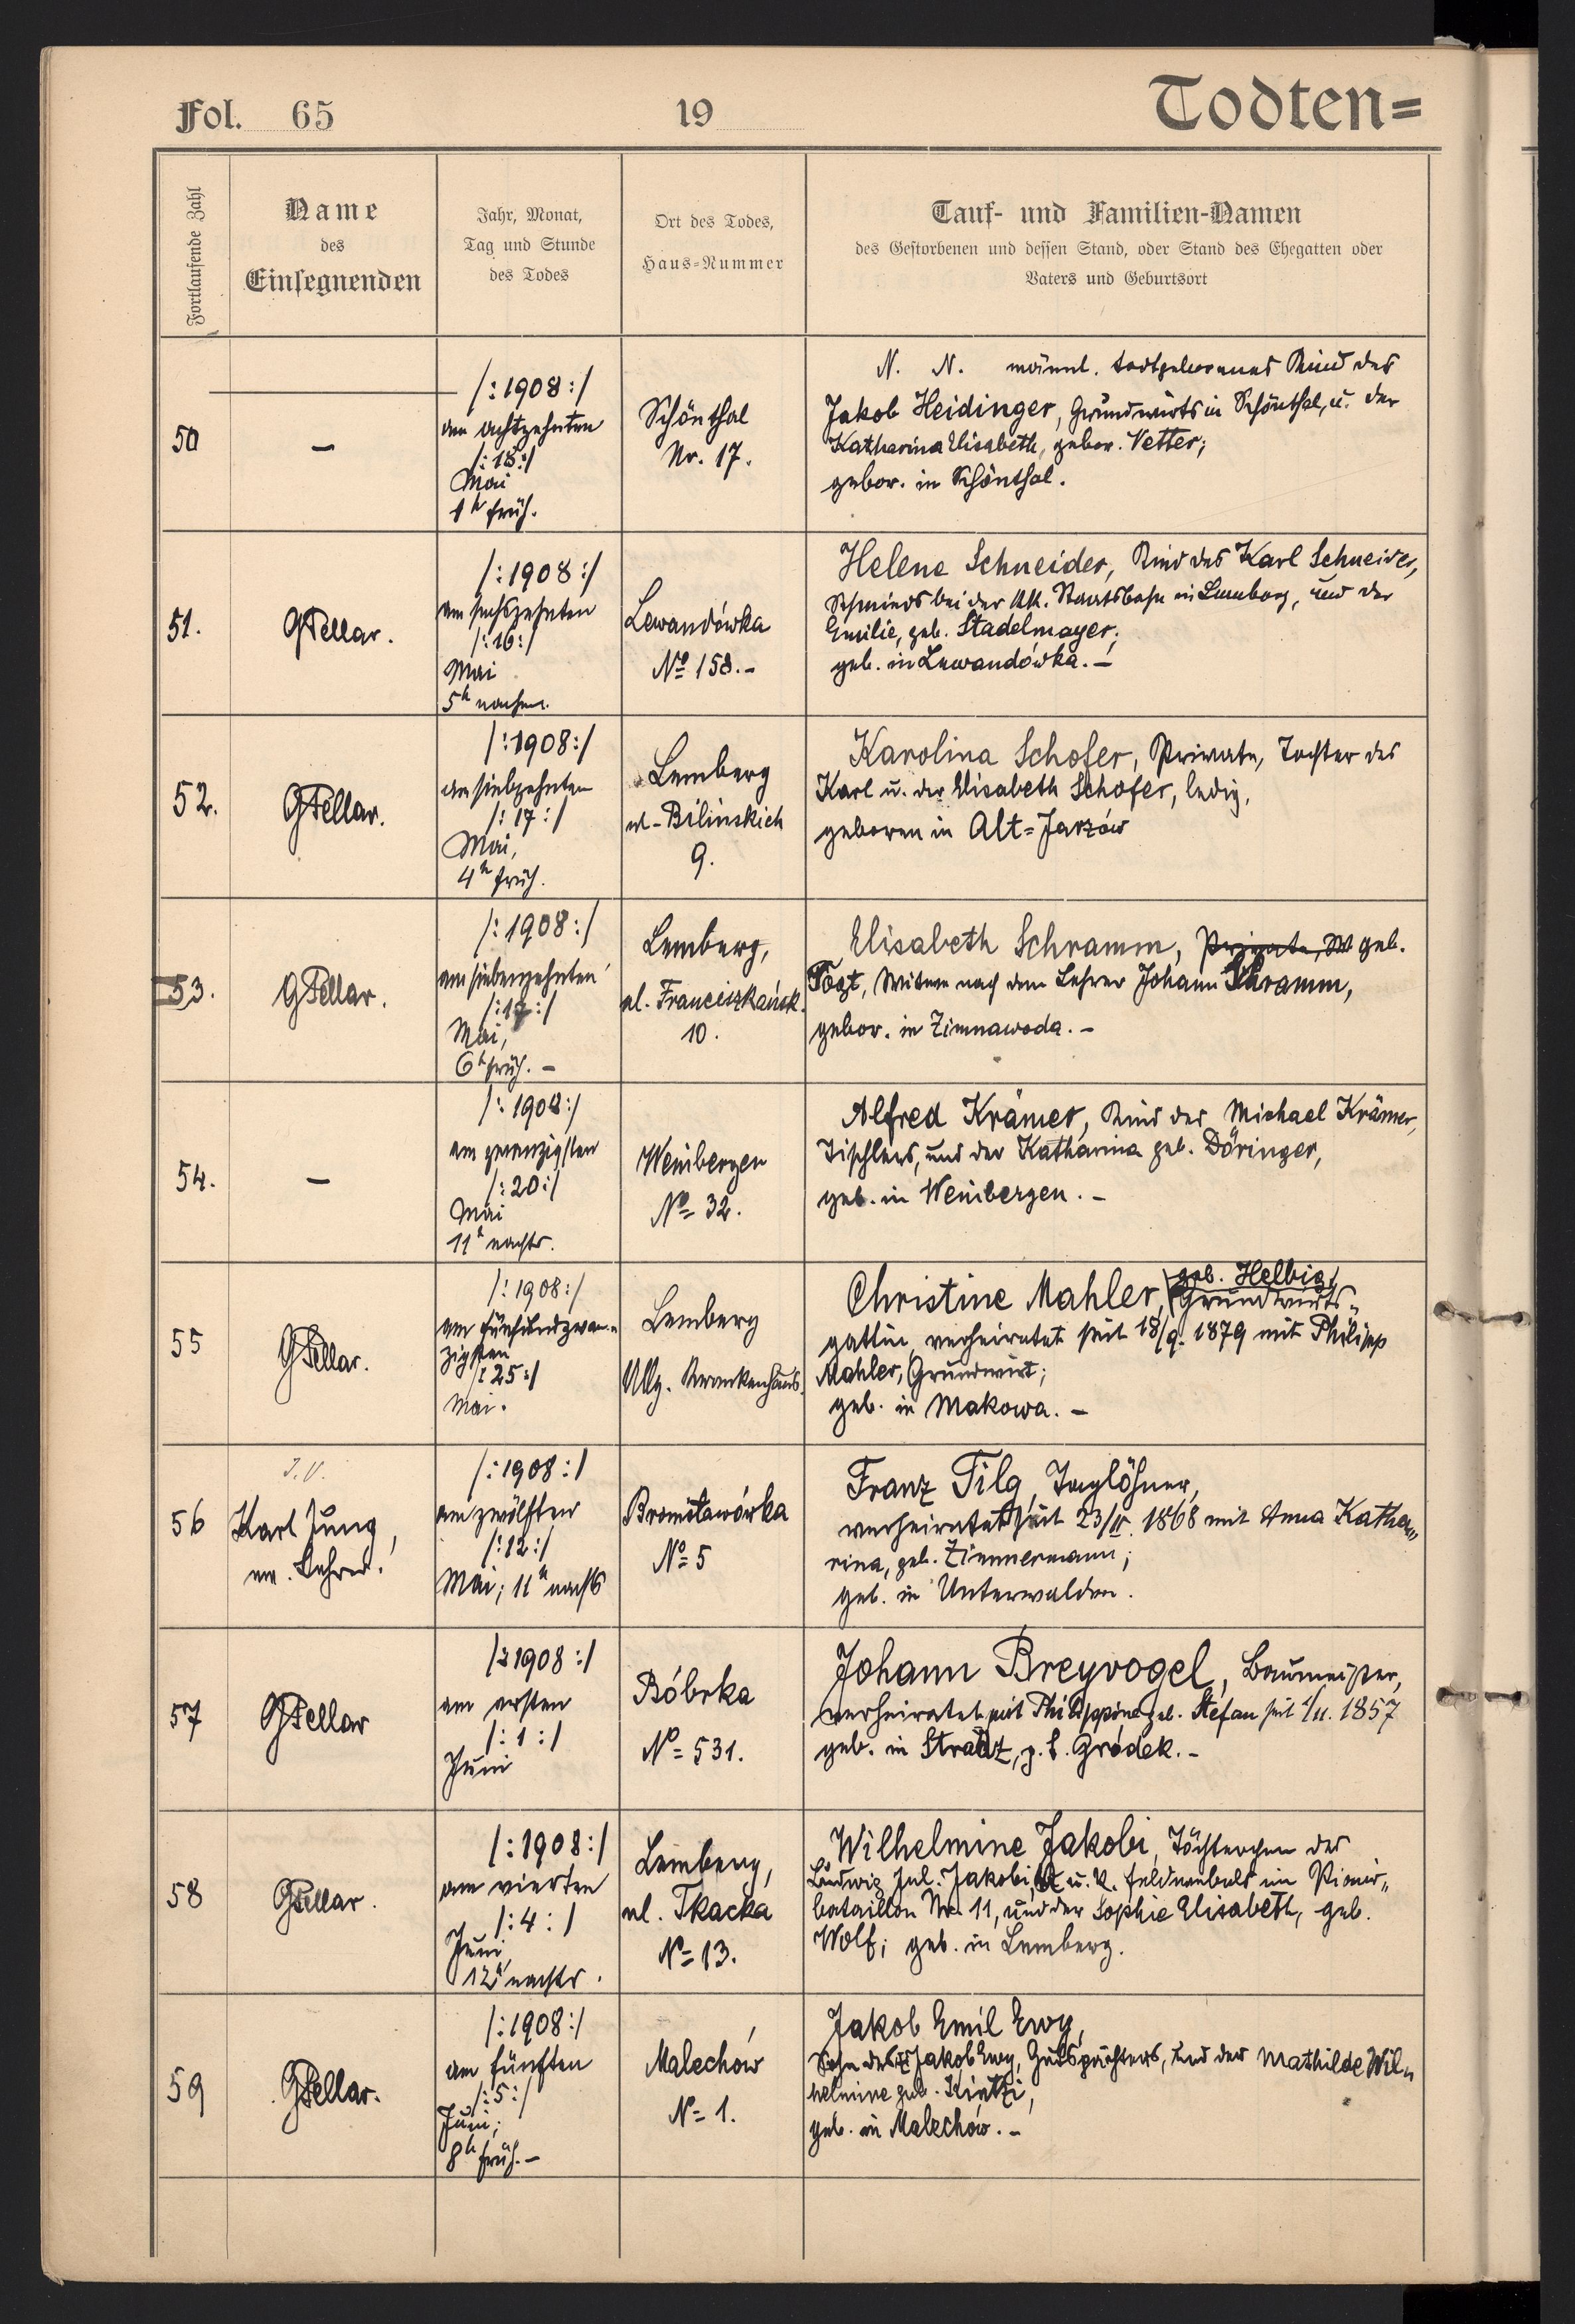 Fol. 65
19
Todten=
Fortlaufende Zahl
Name
des
Einsegnenden
Jahr, Monat,
Tag und Stunde
des Todes
Ort des Todes,
Haus-Nummer
Tauf- und Familien-Namen
des Gestorbenen und dessen Stand, oder Stand des Ehegatten oder
Vaters und Geburtsort
50
–
/:1908:/
am achtzehnten
/:18:/
Mai
1h früh.
Schönthal
Nr. 17.
N. N. männl. todtgeborenes Kind des
Jakob Heidinger, Grundwirts in Schönthal, u. der
Katharina Elisabeth, gebor. Vetter;
gebor. in Schönthal.
51.
/:1908:/
am sechszehnten
/:16:/
Mai
5h nachm.
Lewandówka
No 158.–
Helene Schneider, Kind des Karl Schneider,
Schmieds bei der kk. Staatsbahn in Lemberg, und der
Emilie, geb. Stadelmayer;
geb. in Lewandówka.–
52.
/:1908:/
am siebzehnten
/:17:/
Mai,
4h früh.
Lemberg
ul. Bilinskich
9.
Karolina Schofer, Private, Tochter des
Karl u. der Elisabeth Schofer, ledig,
geboren in Alt=Jarzów
53.
/:1908:/
am siebenzehnten
/:17:/
Mai,
6h früh.–
Lemberg,
ul. Franciszkańsk.
10.
Elisabeth Schramm, Private, W geb.
Vogt, Witwe nach dem Lehrer Johann Schramm,
gebor. in Zimnawoda.–
54.
–
/:1908:/
am zwanzigsten
/:20:/
Mai
11h nachts.
Weinbergen
No 32.
Alfred Krämer, Kind des Michael Krämer,
Tischlers, und der Katharina geb. Döringer,
geb. in Weinbergen.–
55
/:1908:/
am fünfundzwan-
zigsten
/:25:/
Mai.
Lemberg
Allg. Krankenhaus.
geb. Helbig,
Christine Mahler, Grundwirts-
gattin, verheiratet seit 18/9. 1879 mit Philipp
Mahler, Grundwirt;
geb. in Makowa.–
56
I.V.
Karl Jung,
ev. Lehrer.
/:1908:/
am zwölften
/:12:/
Mai; 11h nachts
Bronisławówka
No 5
Franz Tilg, Taglöhner,
verheiratet seit 23/II. 1868 mit Anna Katha-
rina, geb. Zimmermann;
geb. in Unterwalden.
57
/:1908:/
am ersten
/:1:/
Juni
Bóbrka
No 531.
Johann Breyvogel, Baumeister,
verheiratet mit Philippine geb. Stefan seit 1/11. 1857
geb. in Stradz, Gródek.–
58
/:1908:/
am vierten
/:4:/
Juni,
12h nachts.
Lemberg,
ul. Tkacka
No 13.
Wilhelmine Jakobi, Töchterchen des
Ludwig Jul. Jakobi, k. u. k. Feldwebels im Pionier-
bataillon Nr. 11, und der Sophie Elisabeth, geb.
Wolf; geb. in Lemberg.
59
/:1908:/
am fünften
/:5:/
Juni;
8h früh.–
Malechów
No 1.
Jakob Emil Ewy,
Sohn des Jakob Ewy, Gutspächters, und der Mathilde Wil-
helmine geb. Kintzi,
geb. in Malechów.–